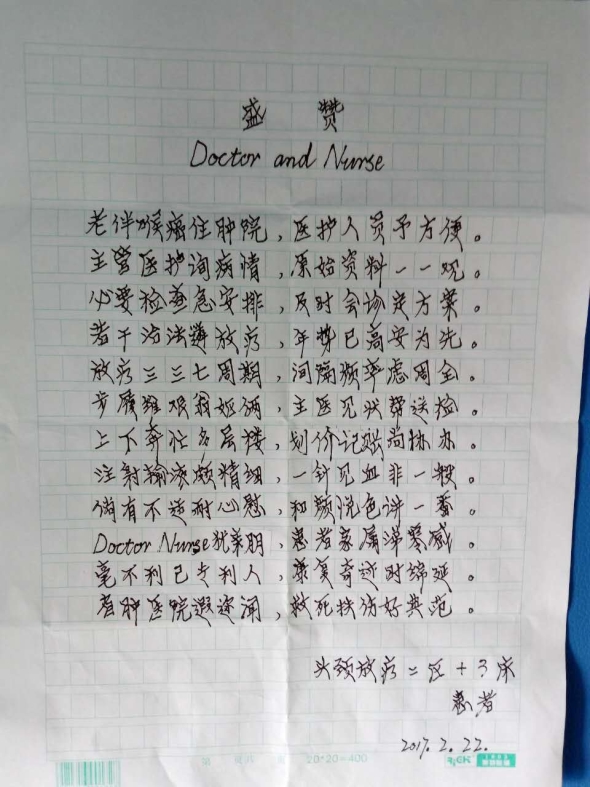 盛 赞
Doctor and Nurse
老伴喉癌住肿院，医护人员予方便。
主管医护询病情，原始资料一一观。
必要检查急安排，及时会诊定方案。
若干治法遴放疗，年势已高安为先。
放疗三三七周期，间隔频率虑周全。
步履维艰翁妪俩，主医见状帮送检。
上下奔往各层楼，划价记账尚协办。
注射输液颇精细，一针见血非一般。
倘有不适耐心慰，和颜悦色讲一番。
Doctor Nurse犹亲朋，患者家属深零感。
毫不利己专利人，康复奇迹时绵延。
省肿医院遐迩闻，救死扶伤好典范。
头颈放疗二区+3床
患者
2017.2.22.
20*20=400